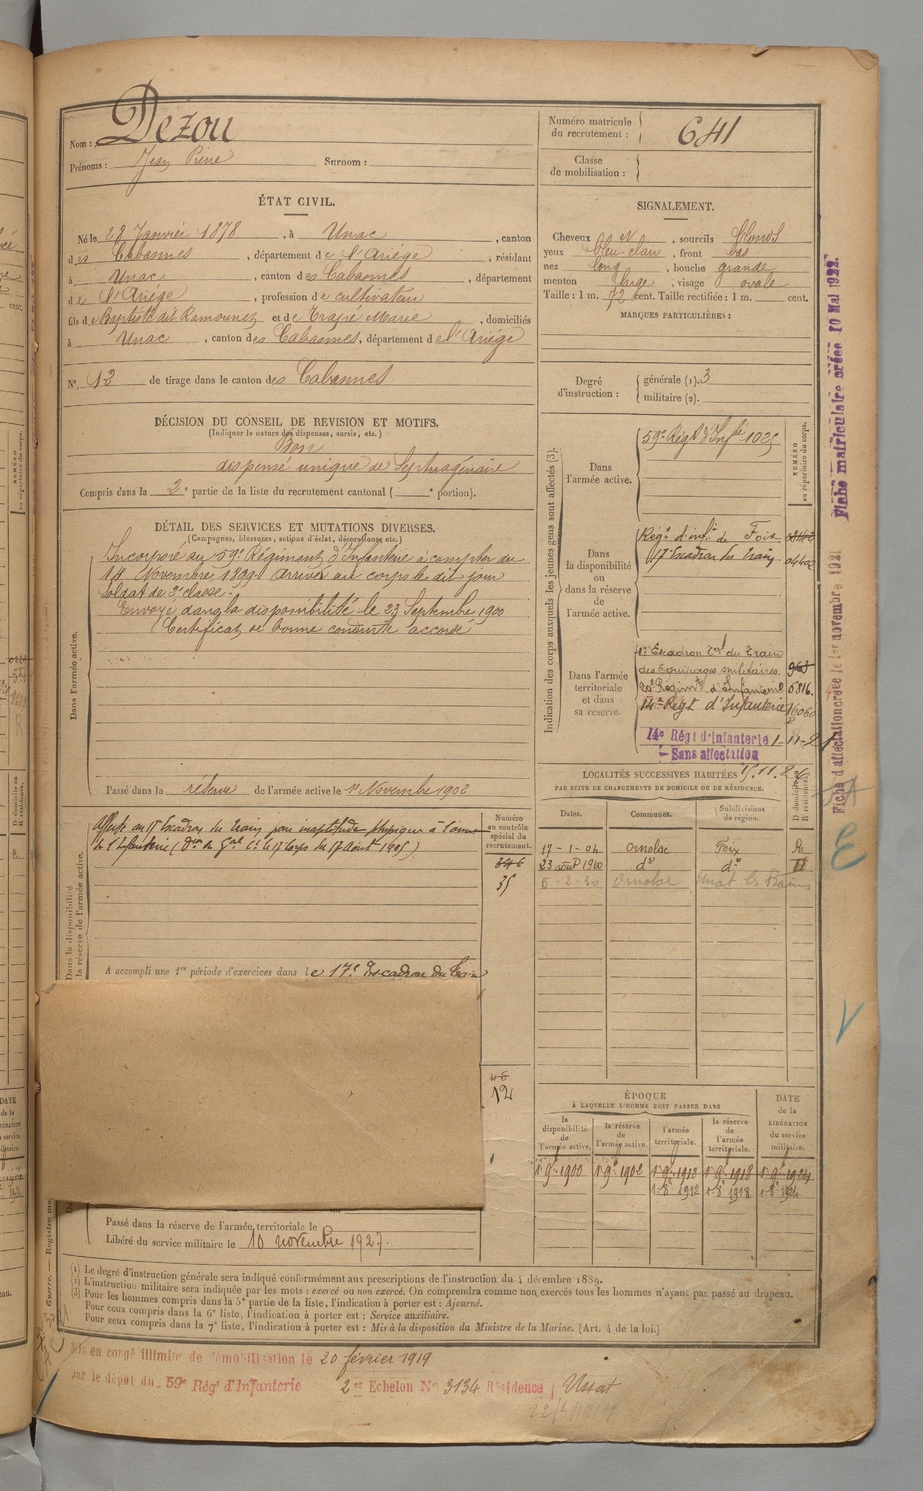 Nom : Dezou
Prénoms : Jean Pierre Surnom :
Numéro matricule du recrutement : 641
Classe de mobilisation :
ÉTAT CIVIL.
Né le 28 Janvier 1878, à Unac, canton
des Cabannes, département de l'Ariège, résidant
à Unac, canton des Cabannes, département
de l'Ariège, profession de cultivateur
fils de Baptiste dit Ramounet et de Trapé Marie, domiciliés
à Unac, canton des Cabannes, département de l'Ariège
N° 12 de tirage dans le canton des Cabannes
SIGNALEMENT.
Cheveux N, sourcils blonds
yeux bleu clair, front bas
nez long, bouche grande
menton large, visage ovale
Taille : 1 m. 72 cent. Taille rectifiée : 1 m. cent.
MARQUES PARTICULIÈRES :
Degré d'instruction : générale (1). 3
militaire (2).
DÉCISION DU CONSEIL DE REVISION ET MOTIFS.
(Indiquer la nature des dispenses, sursis, etc.)
Bon
dispensé unique de Septuagénaire
Compris dans la 2e partie de la liste du recrutement cantonal ( e portion).
DÉTAIL DES SERVICES ET MUTATIONS DIVERSES.
(Campagnes, blessures, actions d'éclat, décorations, etc.)
Dans l'armée active.
Incorporé au 59e Régiment d'Infanterie à compter du
14 Novembre 1899. Arrivé au corps le dit jour
soldat de 2e classe.
Envoyé dans la disponibilité le 23 Septembre 1900
Certificat de bonne conduite accordé
Passé dans la réserve de l'armée active le 1er Novembre 1902
Indication des corps auxquels les jeunes gens sont affectés (3).
NUMÉRO au répertoire du corps.
Dans l'armée active.
59e Régt d'Infie
Dans la disponibilité ou dans la réserve de l'armée active.
Régt d'infie de Foix
17 Escadron du train 04402
Dans l'armée territoriale et dans sa réserve.
17e Escadron Tal du Train
des Equipages militaires
Régimt d'Infanterie 5816.
14e Régt d'Infanterie
14e Régt d'Infanterie 1-11-21
Sans affectation
15.11.26
Fiche matriculaire créée 10 Mai 1922.
Fiche d'affectation créée le 1er novembre 1921
Dans la disponibilité la réserve de l'armée active.
Affecté au 17 Escadron du train pour inaptitude physique à l'arme
de l'Infanterie (Don du Gal Ct le 17 Corps du 17 Août 1905)
Numéro au contrôle spécial du recrutement.
346
35
A accompli une 1re période d'exercices dans le 17e Escadron du Train
12
LOCALITÉS SUCCESSIVES HABITÉES
PAR SUITE DE CHANGEMENTS DE DOMICILE OU DE RÉSIDENCE.
Dates. Communes. Subdivisions de région. D domicile ou R résidence.
17-1-04 Ornolac Foix R
23 aout 1900 do do
Ornolac Ussat les Bains
ÉPOQUE
À LAQUELLE L'HOMME DOIT PASSER DANS
la disponibilité de l'armée active.
la réserve de l'armée active.
l'armée territoriale.
la réserve de l'armée territoriale.
DATE de la LIBÉRATION du service militaire.
1er 9e 1900 1er 9e 1902 1er 9e 1912 1er 9e 1918 1er 9e 1924
1er 8e 1912 1er 8e 1918 1er 8e 1924
Passé dans la réserve de l'armée territoriale le
Libéré du service militaire le 10 novembre 1927.
(1) Le degré d'instruction générale sera indiqué conformément aux prescriptions de l'instruction du 4 décembre 1889.
(2) L'instruction militaire sera indiquée par les mots : exercé ou non exercé. On comprendra comme non exercés tous les hommes n'ayant pas passé au drapeau.
(3) Pour les hommes compris dans la 5e partie de la liste, l'indication à porter est : Ajourné.
Pour ceux compris dans la 6e liste, l'indication à porter est : Service auxiliaire.
Pour ceux compris dans la 7e liste, l'indication à porter est : Mis à la disposition du Ministre de la Marine. (Art. 4 de la loi.)
Mis en congé illimité de démobilisation le 20 février 1919
par le dépôt du 59e Régt d'Infanterie 2er Echelon No 3134 Résidence Ussat